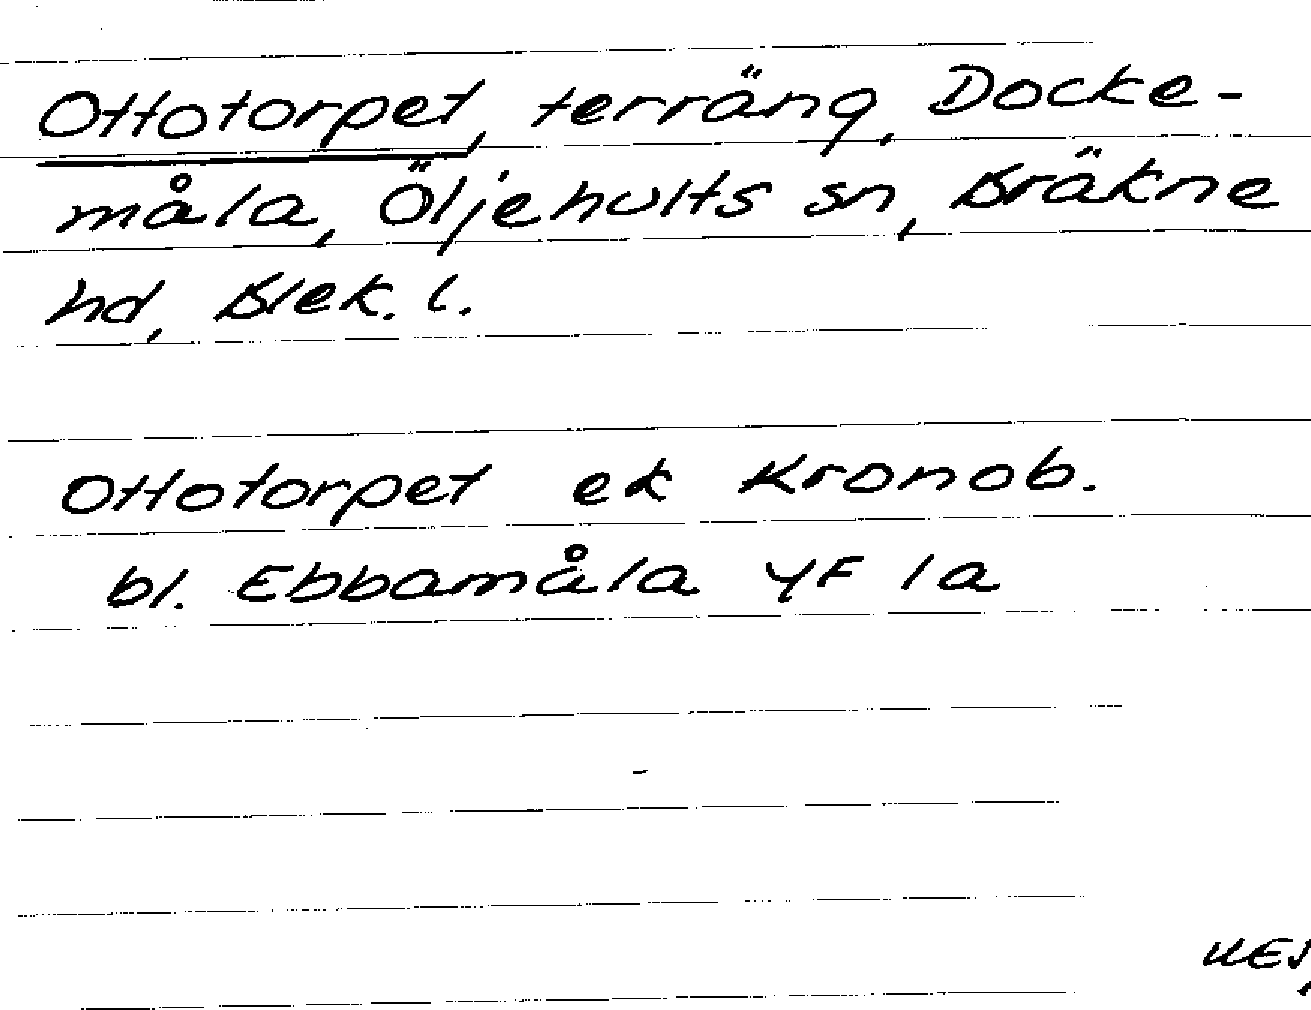 Ottotorpet, terräng, Docke-
måla, Öljehults sn, Bräkne
hd, Blek. l.
Ottotorpet ek Kronob.
bl. Ebbamåla YF 1a